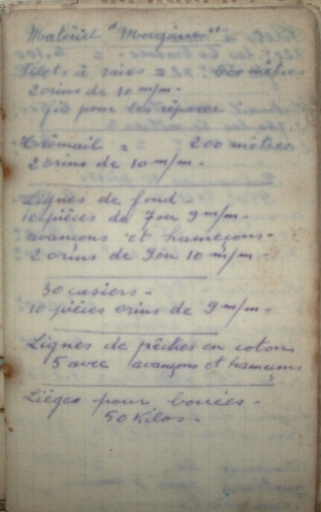 Matériel "Mougános"
Filets à raies = 
2 orins de 10 m/m.
fil pour les réparer
Trémail = = 200 mètres
2 orins de 10 m/m.
Lignes de fond
10 pièces de 7 ou 9 m/m.
avançons et hameçons.
2 orins de 9 ou 10 m/m.
30 casiers.
10 pièces orins de 9 m/m.
Lignes de pêches en coton
5 avec avançons et hameçons
Lièges pour bouées.
50 Kilos.